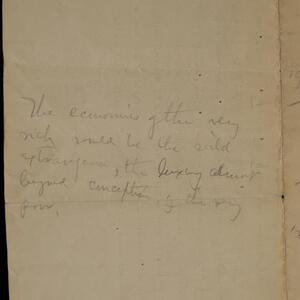 The economies of the very
rich would be the wild
extravagance, the luxury almost
beyond conception, of the very
poor.